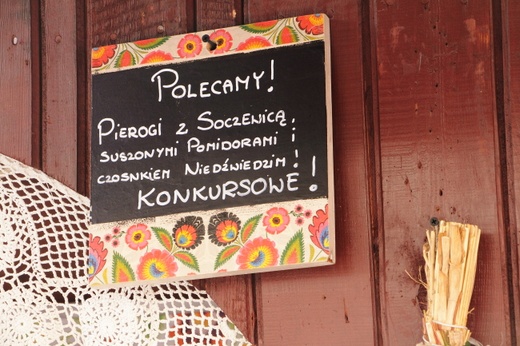 POLECAMY!
PIEROGI Z SOCZENICĄ,
SUSZONYMI POMIDORAMI i
CZOSNKIEM NIEDŹWIEDZIM!
KONKURSOWE!